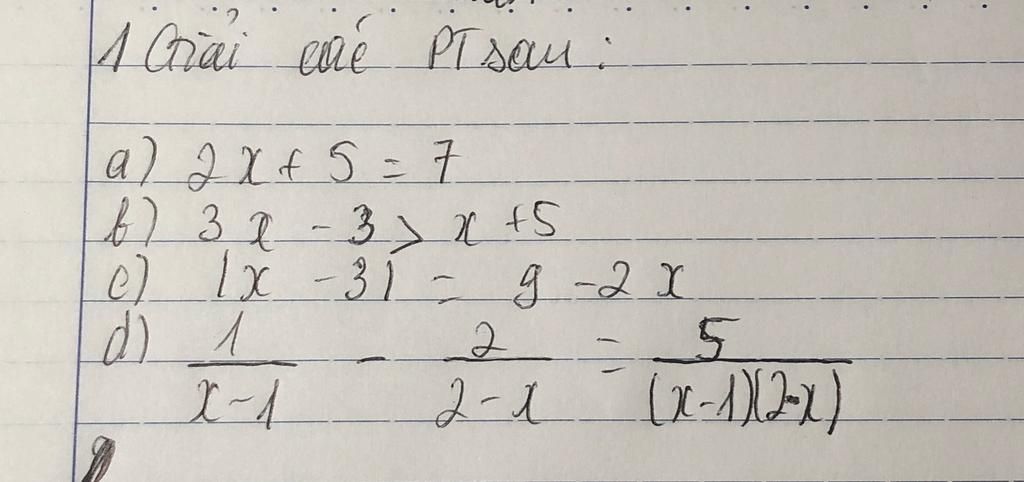 1 Giải các PT sau :
a) 2x + 5 = 7
b) 3x - 3 > x + 5
c) |x - 3| = 9 - 2x
d) 1/(x-1) - 2/(2-x) = 5/((x-1)(2-x))